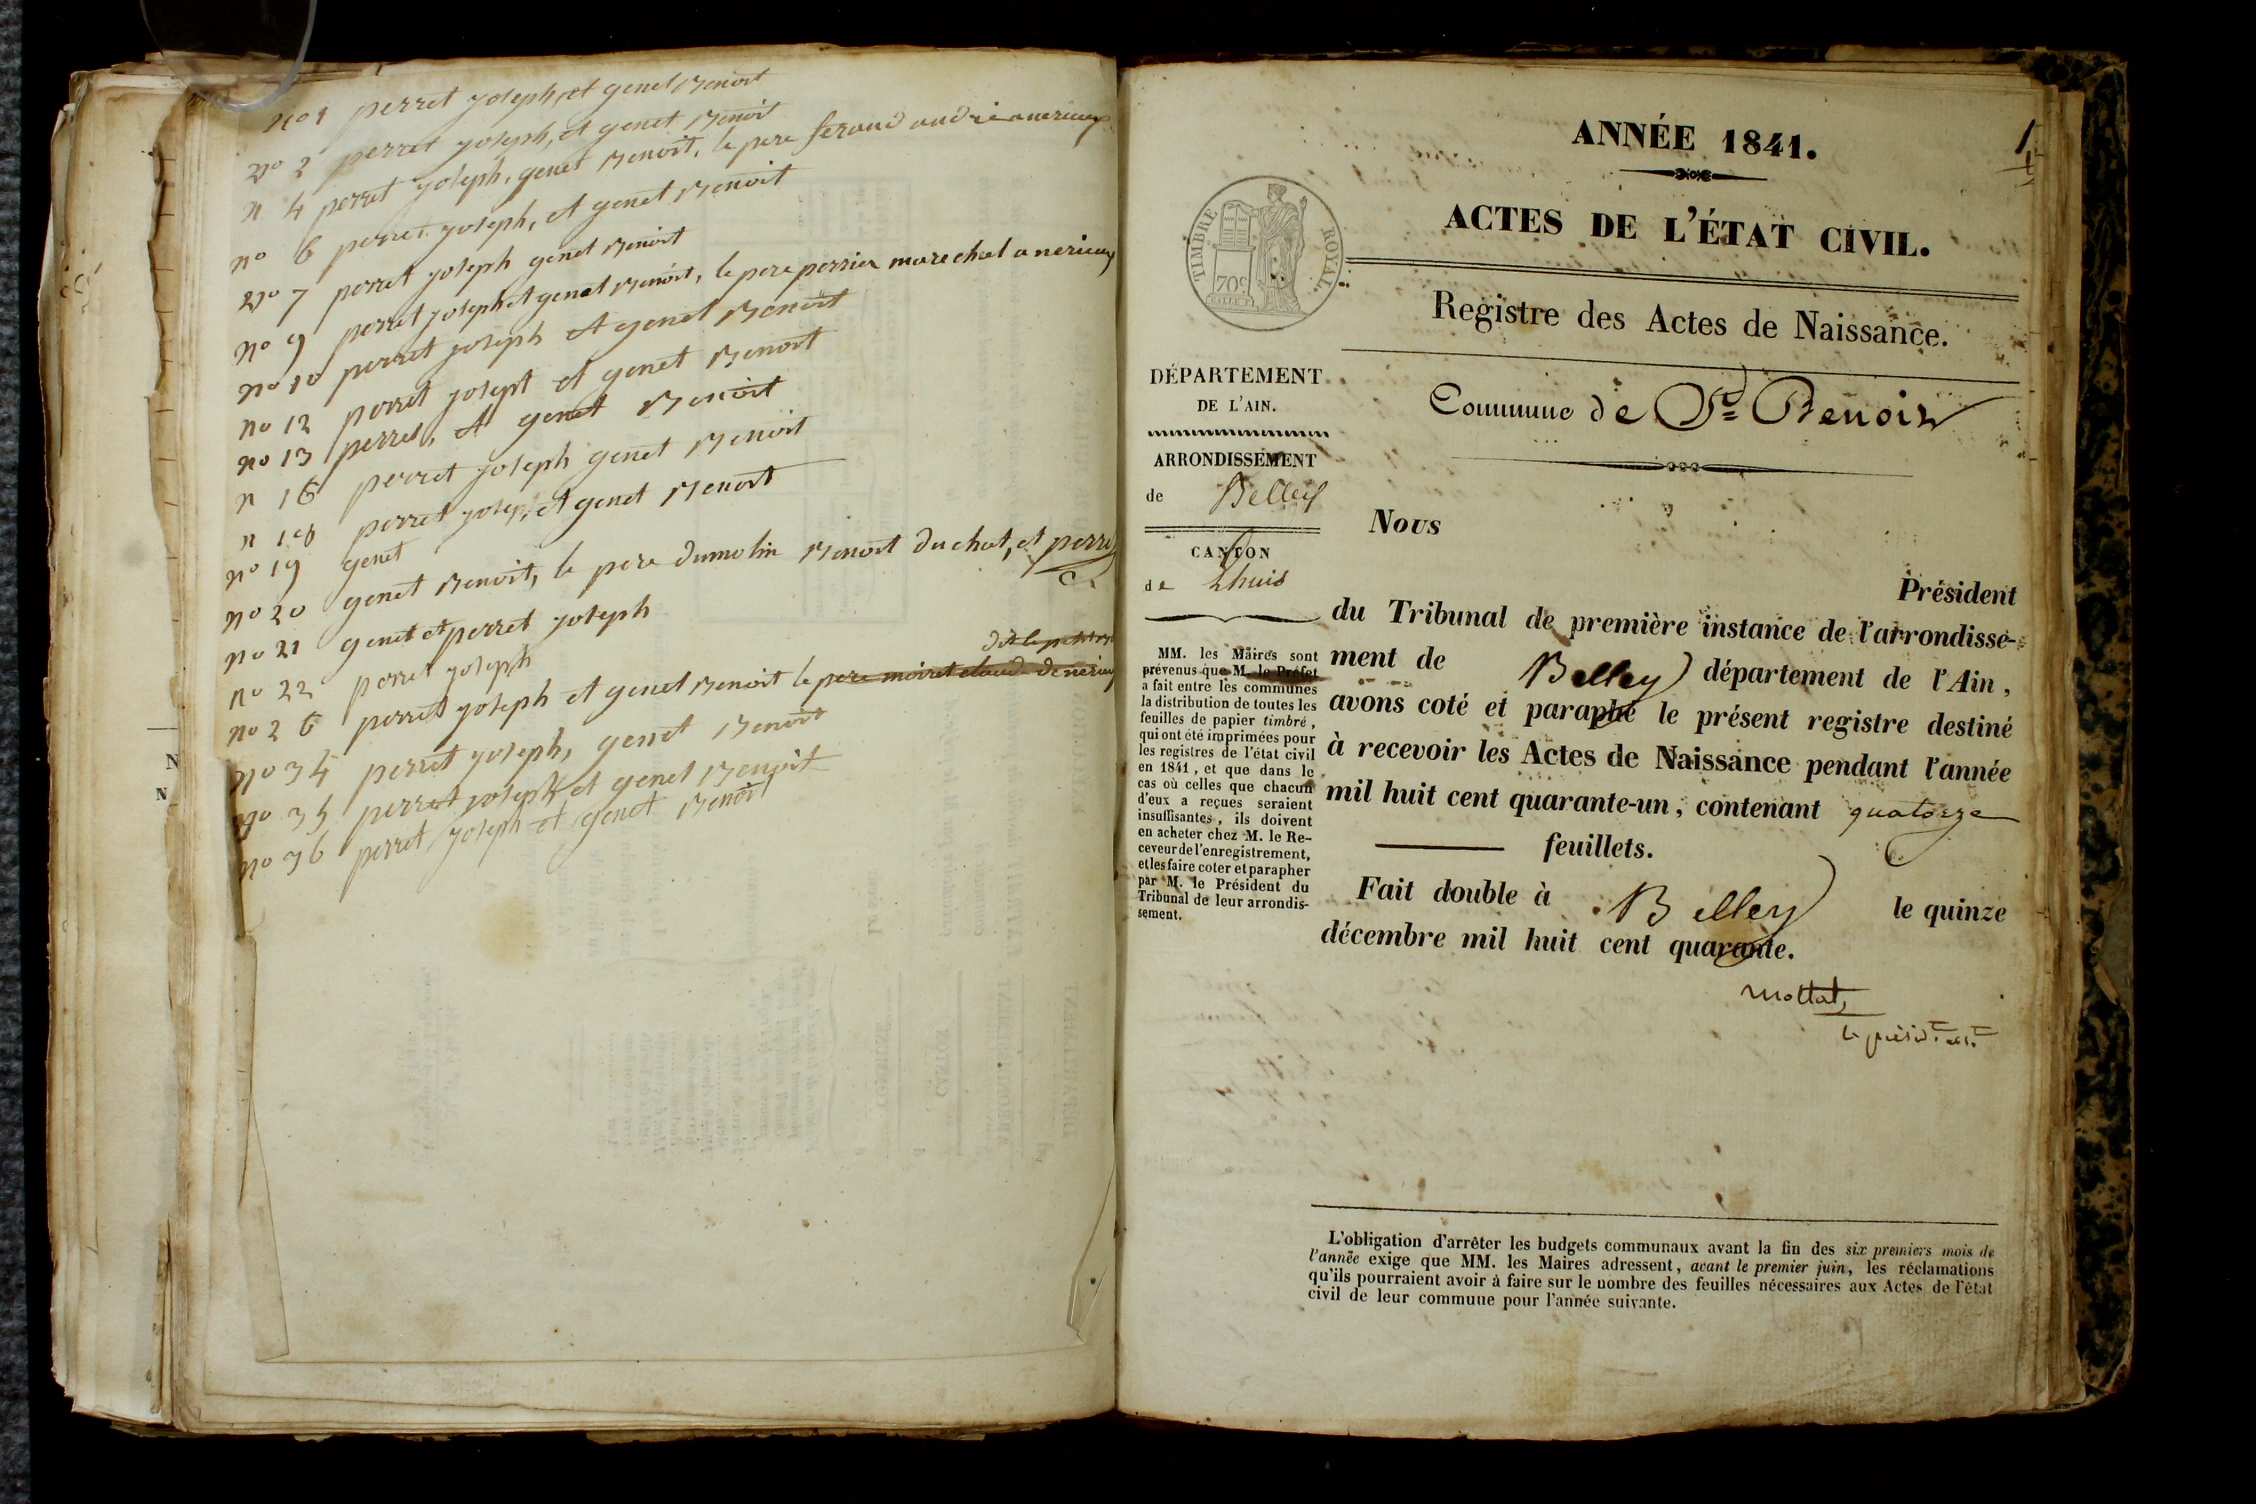 no 1 perret joseph, et genet Benoit
no 2 perret joseph, et genet Benoit
n 4 perret joseph, genet Benoit, le pere feraud andré a nerieux
no 6 perret joseph, et genet Benoit
no 7 perret joseph genet Benoit
no 9 perret joseph et genet Benoit, le pere perrier marechal a nerieux
no 10 perret joseph et genet Benoit
no 12 perret josept et genet Benoit
no 13 perret, et genet Benoit
n 16 perret joseph genet Benoit
n 18 perret joseph, et genet Benoit
no 19 genet
no 20 genet Benoit, le pere dumolin Benoit duchat, et perret
no 21 genet et perret joseph
no 22 perret joseph
dit le petit
no 26 perret joseph et genet Benoit le pere moiret claud de nerieux
no 34 perret joseph, genet Benoit
no 35 perret joseph et genet Benoit
no 36 perret joseph et genet Benoit
N
N
1
ANNÉE 1841.
ACTES DE L'ÉTAT CIVIL.
TIMBRE ROYAL
70c
Registre des Actes de Naissance.
Commune de St Benoit
DÉPARTEMENT
DE L'AIN.
ARRONDISSEMENT
de Belley
CANTON
de Lhuis
MM. les Maires sont
prévenus que M. le Préfet
a fait entre les communes
la distribution de toutes les
feuilles de papier timbré,
qui ont été imprimées pour
les registres de l'état civil
en 1841, et que dans le
cas où celles que chacun
d'eux a reçues seraient
insuffisantes, ils doivent
en acheter chez M. le Re-
ceveur de l'enregistrement,
et les faire coter et parapher
par M. le Président du
Tribunal de leur arrondis-
sement.
Nous
Président
du Tribunal de première instance de l'arrondisse-
ment de Belley département de l'Ain,
avons coté et paraphé le présent registre destiné
à recevoir les Actes de Naissance pendant l'année
mil huit cent quarante-un, contenant quatorze
feuillets.
Fait double à Belley le quinze
décembre mil huit cent quarante.
Mottat,
le présidt
L'obligation d'arrêter les budgets communaux avant la fin des six premiers mois de
l'année exige que MM. les Maires adressent, avant le premier juin, les réclamations
qu'ils pourraient avoir à faire sur le nombre des feuilles nécessaires aux Actes de l'état
civil de leur commune pour l'année suivante.